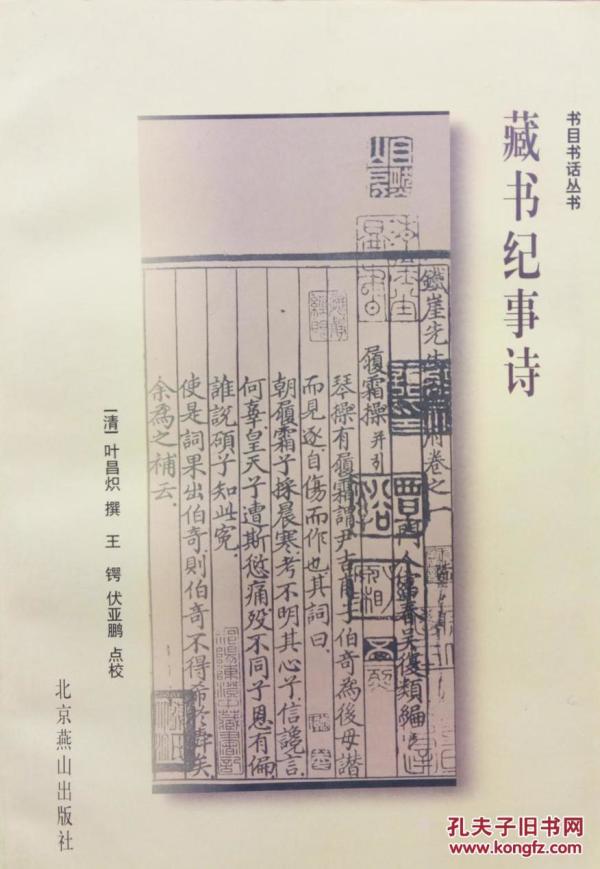 书目书话丛书
藏书纪事诗
[清] 叶昌炽 撰 王 锷 伏亚鹏 点校
北京燕山出版社
鐵崖先生 府卷之一
人富春吴復類編
履霜操 并引
琴操有履霜謂尹吉甫子伯奇為後母譖
而見逐自傷而作也其詞曰
朝履霜兮採晨寒考不明其心兮信讒言
何辜皇天兮遭斯愆痛殁不同兮恩有偏
誰說碩兮知此寃
使是詞果出伯奇則伯奇不得希於舜矣
余為之補云
孔夫子旧书网
www.kongfz.com